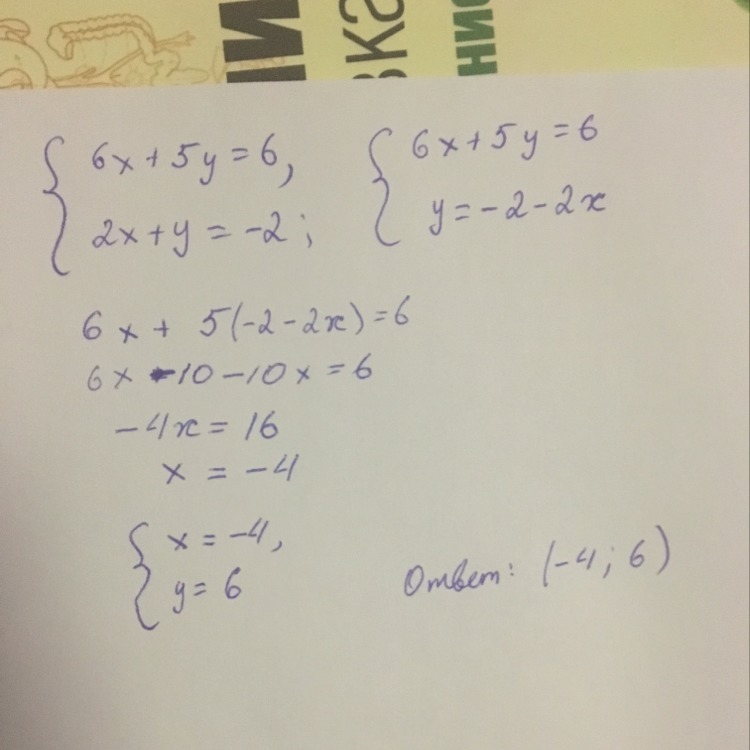 6x + 5y = 6,
2x + y = -2;
6x + 5y = 6
y = -2 - 2x
6x + 5(-2 - 2x) = 6
6x - 10 - 10x = 6
-4x = 16
x = -4
x = -4,
y = 6
Ответ: (-4; 6)